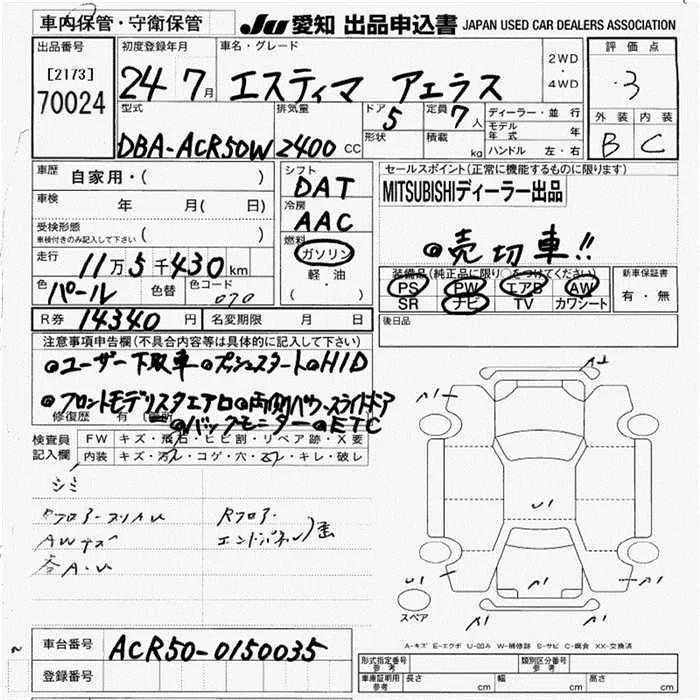 車内保管・守衛保管 JU 愛知 出品申込書 JAPAN USED CAR DEALERS ASSOCIATION
出品番号 初度登録年月 車名・グレード 2WD ・ 4WD 評価点
[2173] 70024 24 7月 エスティマ アエラス 3
型式 排気量 ドア 5 定員 7人 ディーラー・並行 外装 内装
形状 積載 kg モデル年式 年
DBA-ACR50W 2400 CC ハンドル 左・右 B C
車歴 自家用・( ) シフト DAT セールスポイント(正常に機能するものに限ります)
車検 年 月( 日) 冷房 AAC MITSUBISHIディーラー出品
受検形態 車検付きのみ記入して下さい ( ) 燃料 ガソリン ◎売切車!!
走行 11万5千430km 軽油 装備品(純正品に限り○をつけてください) 新車保証書
色 パール 色替 色コード 070 ・( ) PS PW エアB AW 有・無
SR ナビ TV カワシート
R券 14340円 名変期限 月 日 後日品
注意事項申告欄(不具合内容等は具体的に記入して下さい)
◎ユーザー下取車◎プッシュスタート◎HID
◎フロントモデリスタエアロ◎両側パワースライドドア
修復歴 有 ◎バックモニター◎ETC
検査員記入欄 FW キズ・飛石・ヒビ割・リペア跡・X要
内装 キズ・汚レ・コゲ・穴・スレ・キレ・破レ
シミ
Rフロア
AWキズ エンドパネル
各A・U
A1 A1 U1 A1 A1 A1 U1
スペア
A-キズ E-エクボ U-凹み W-補修跡 S-サビ C-腐食 XX-交換済
車台番号 ACR50-0150035
登録番号
形式指定番号 参考 類別区分番号 参考
車庫証明用 参考 長さ cm 幅 cm 高さ cm